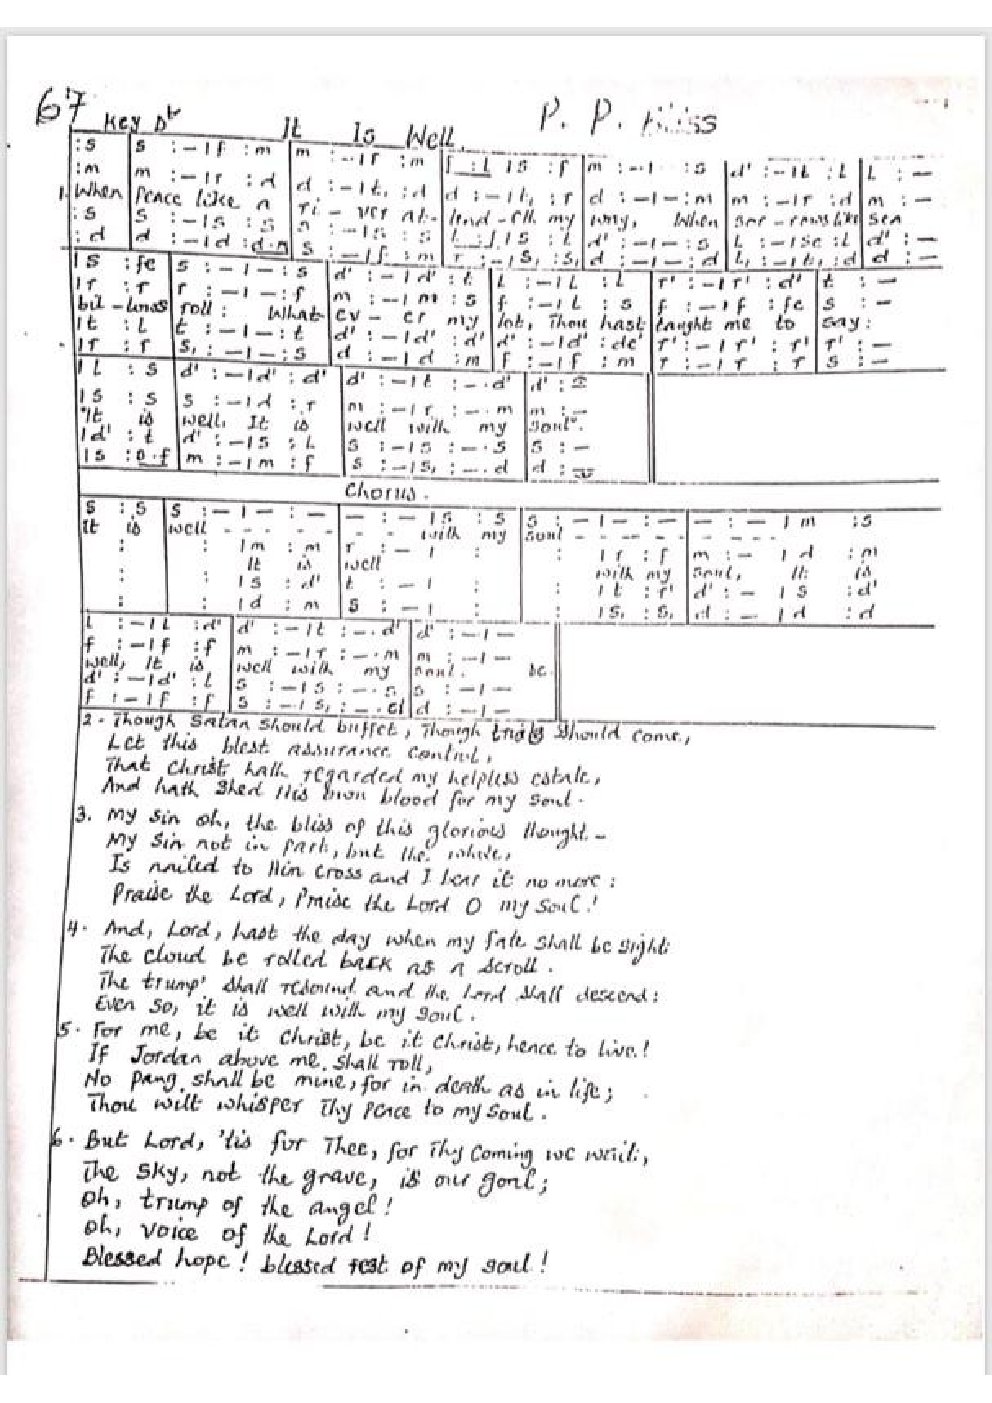 67 Key Db It Is Well P. P. Bliss
:s | s :-|f :m | m :-|r :m | f :L |s :f | m :-|- :s | d' :-|t :L | L :-
:m | m :-|r :d | d :-|t, :d | d :-|t, :r | d :-|- :m | m :-|r :d | m :-
1. When | Peace like a | ri - ver at- | tend - eth my | way, When | sor - rows like | sea
:s | s :-|s :s | s :-|s :s | L :f |s :L | d' :-|- :s | L :-|se :L | d' :-
:d | d :-|d :d.m | s :-|f :m | r :-|s, :s, | d :-|- :d | L, :-|t, :d | d :-
|s :fe | s :-|- :s | d' :-|d' :t | L :-|L :L | r' :-|r' :d' | t :-
|r :r | r :-|- :f | m :-|m :s | f :-|L :s | f :-|f :fe | s :-
bil -lows | roll: What- | ev - er my | lot, Thou hast | taught me to | say:
|t :L | t :-|- :t | d' :-|d' :d' | d' :-|d' :de' | r' :-|r' :r' | r' :-
|r :r | s, :-|- :s | d :-|d :m | f :-|f :m | r :-|r :r | s :-
|L :s | d' :-|d' :d' | d' :-|t :-.d' | d' :-
|s :s | s :-|d :r | m :-|r :-.m | m :-
"It is | well, It is | well with my | soul".
|d' :t | d' :-|s :L | s :-|s :-.s | s :-
|s :s.f | m :-|m :f | s :-|s, :-.d | d :-
Chorus.
s :s | s :-|- :- | - :-|s :s | s :-|- :- | - :-|m :s
It is | well - - - - | - - with my | soul - - - - | - - - -
: | : |m :m | r :-| : | : |r :f | m :-|d :m
It is | well | with my | soul, It is
: | : |s :d' | t :-| : | : |t :r' | d' :-|s :d'
: | : |d :m | s :-| : | : |s, :s, | d :-|d :d
L :-|L :d' | d' :-|t :-.d' | d' :-|-
f :-|f :f | m :-|r :-.m | m :-|-
well, It is | well with my | soul.
d' :-|d' :L | s :-|s :-.s | s :-|-
f :-|f :f | s :-|s, :-.d | d :-|-
2. Though Satan should buffet, Though trials should come,
Let this blest assurance control,
That Christ hath regarded my helpless estate,
And hath shed His own blood for my soul.
3. My sin oh, the bliss of this glorious thought -
My sin not in part, but the whole,
Is nailed to Him cross and I bear it no more:
Praise the Lord, Praise the Lord O my soul!
4. And, Lord, hast the day when my fate shall be sight
The cloud be rolled back as a scroll.
The trump' shall resound and the Lord shall descend:
Even so, it is well with my soul.
5. For me, be it Christ, be it Christ, hence to live!
If Jordan above me shall roll,
No pang shall be mine, for in death as in life;
Thou wilt whisper Thy peace to my soul.
6. But Lord, 'tis for Thee, for Thy coming we wait,
The sky, not the grave, is our goal;
Oh, trump of the angel!
Oh, voice of the Lord!
Blessed hope! blessed rest of my soul!